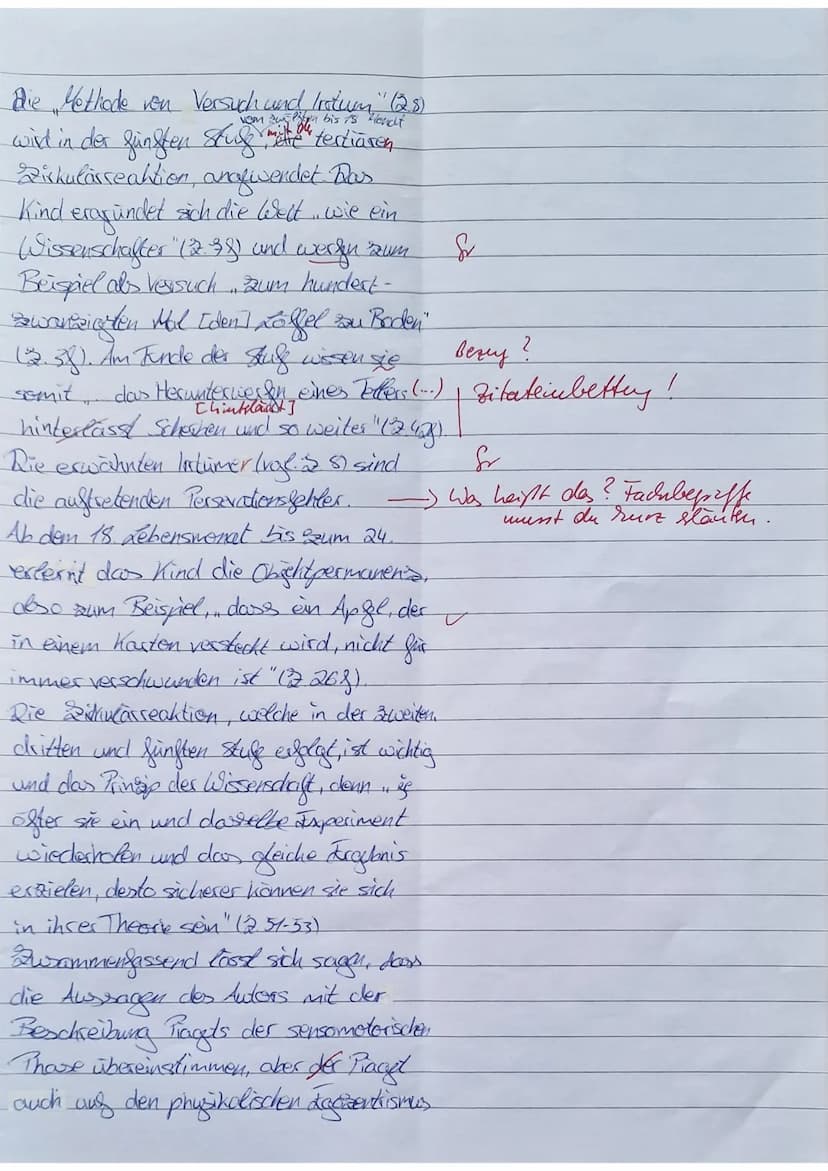 Die „Methode von Versuch und Irrtum" (Z 8)
vom zwölften bis 18 Monat
wird in der fünften Stufe, mit der tertiären
Zirkulärreaktion, angewendet. Das
Kind ergründet sich die Welt „wie ein
Wissenschafter" (Z. 38) und werfen zum Gr
Beispiel als Versuch „zum hundert-
zwanzigsten Mal [den] Löffel zu Boden"
(Z. 3f). Am Ende der Stufe wissen sie Bezug?
somit „das Herunterwerfen eines Tellers (...) Zitateinbettung!
[hinterlässt]
hinterlässt Scherben und so weiter" (Z 42f).
Die erwähnten Irrtümer (vgl. Z 8) sind Gr
die auftretenden Perservationsfehler. → Was heißt das? Fachbegriffe
musst du kurz erläutern.
Ab dem 18. Lebensmonat bis zum 24.
erlernt das Kind die Objektpermanenz,
also zum Beispiel, „dass ein Apfel, der ✓
in einem Kasten versteckt wird, nicht für
immer verschwunden ist" (Z 26f).
Die Zirkulärreaktion, welche in der zweiten,
dritten und fünften Stufe erfolgt, ist wichtig
und das Prinzip der Wissenschaft, denn „je
öfter sie ein und dasselbe Experiment
wiederholen und das gleiche Ergebnis
erzielen, desto sicherer können sie sich
in ihrer Theorie sein" (Z 51-53)
Zusammenfassend lässt sich sagen, dass
die Aussagen des Autors mit der
Beschreibung Piagets der sensomotorischen
Phase übereinstimmen, aber der Piaget
auch auf den physikalischen Egozentrismus